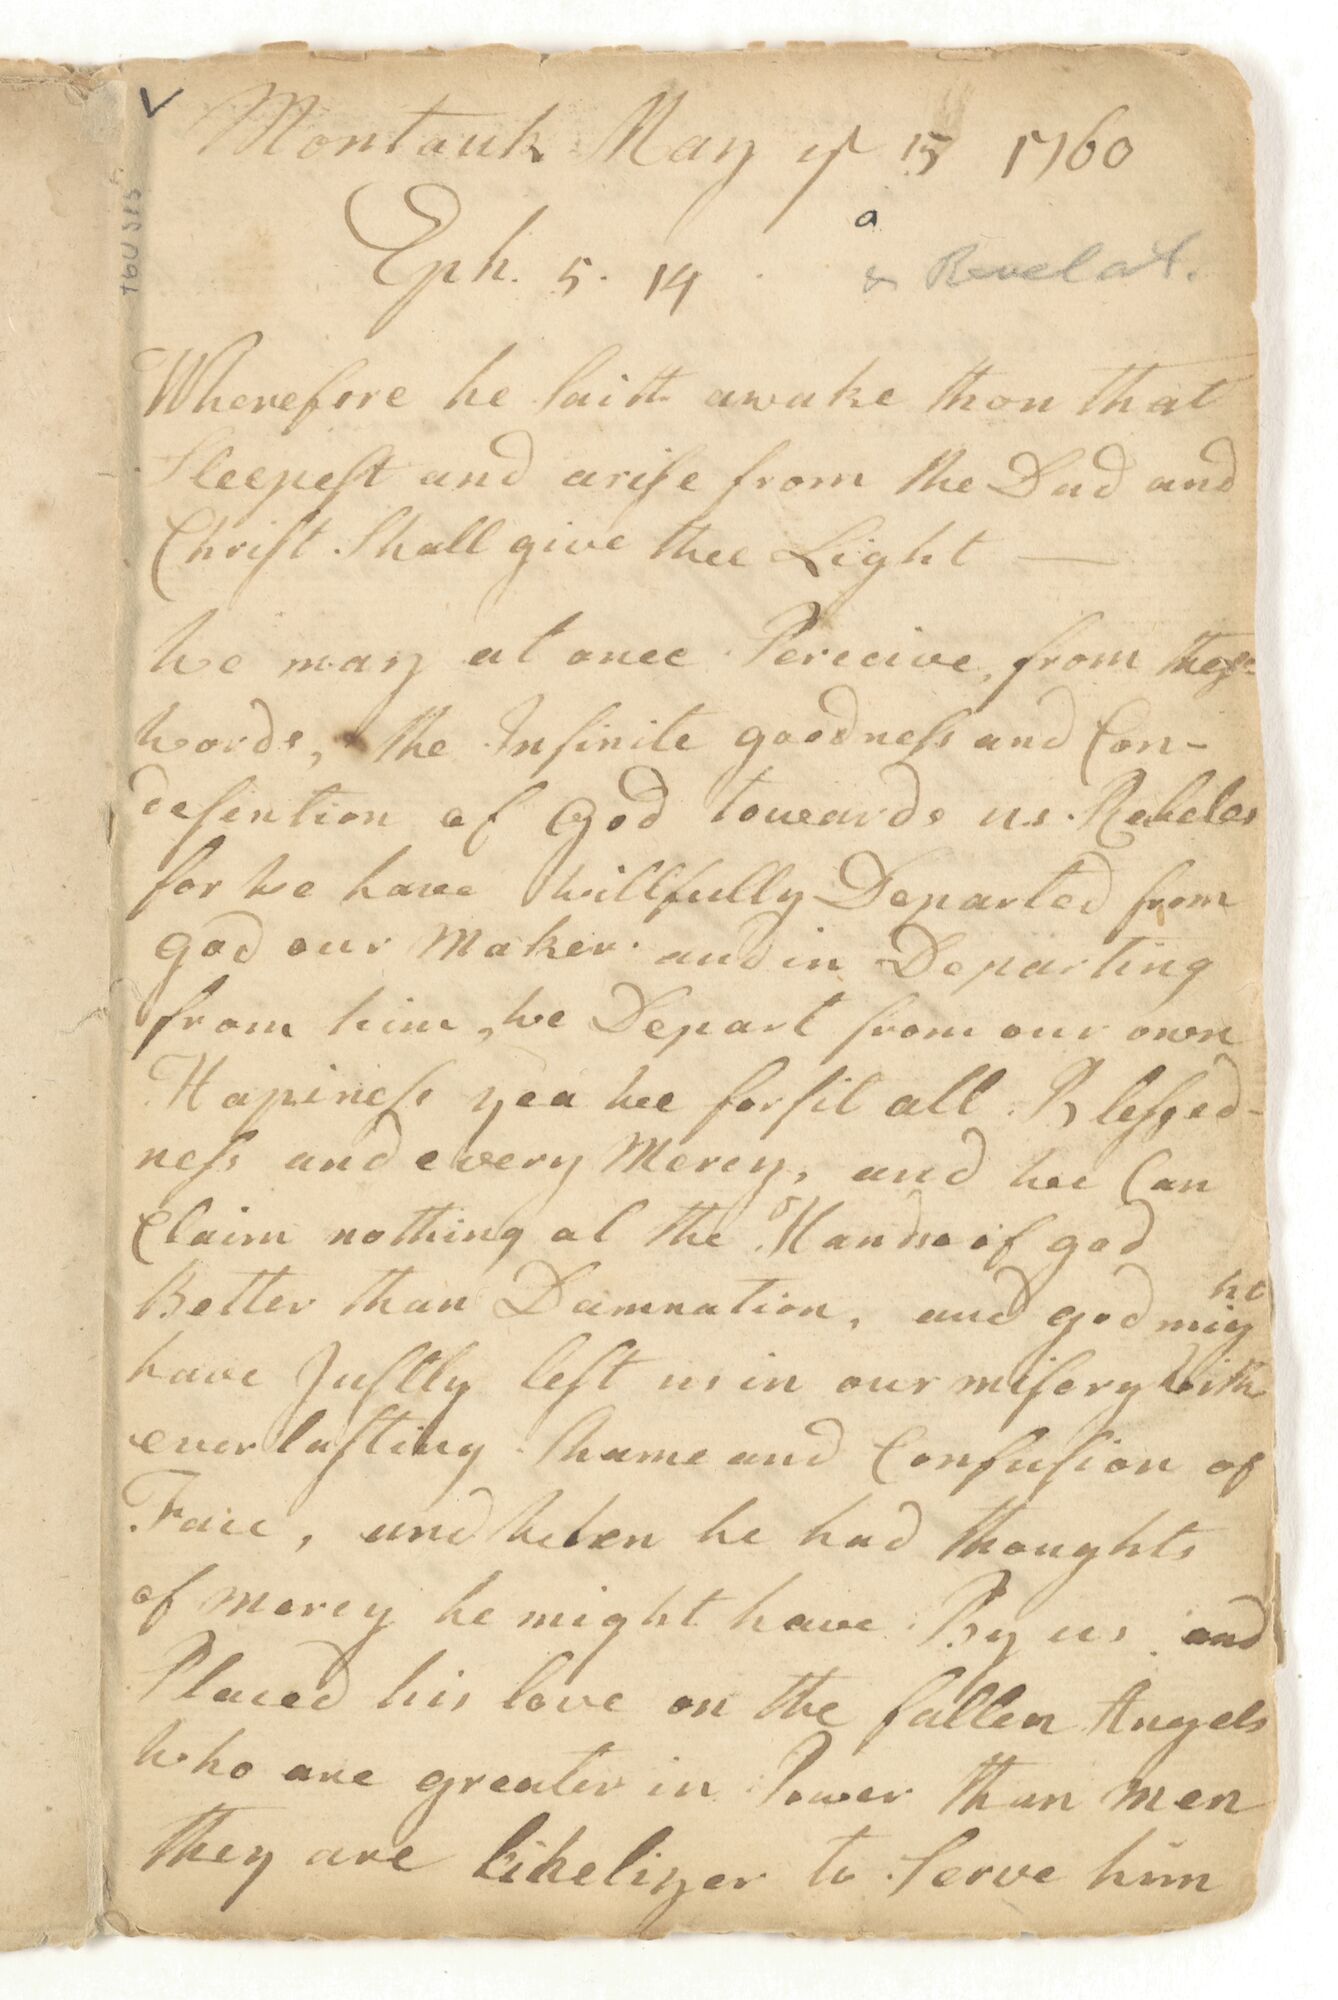 Montauk May ye 15 1760
a
Eph. 5. 14 & Revelat.
760315
Wherefore he Saith awake thou that
Sleepest and arise from the Dad and
Christ Shall give thee Light —
We may at once Perceive, from these
words, the Infinite goodness and Con-
desention of God towards us Rebeles
for we have willfully Departed from
god our Maker and in Departing
from him, we Depart from our own
Hapiness yea we forfit all Blessed-
ness and every Mercy, and we Can
Claim nothing at the Hands of god
Better than Damnation, and god might
have Justly left us in our misery with
everlasting Shame and Confusion of
Face, and when he had thoughts
of mercy he might have By us and
Placed his love on the fallen Angels
who are greater in Power than men
they are likeliyer to Serve him